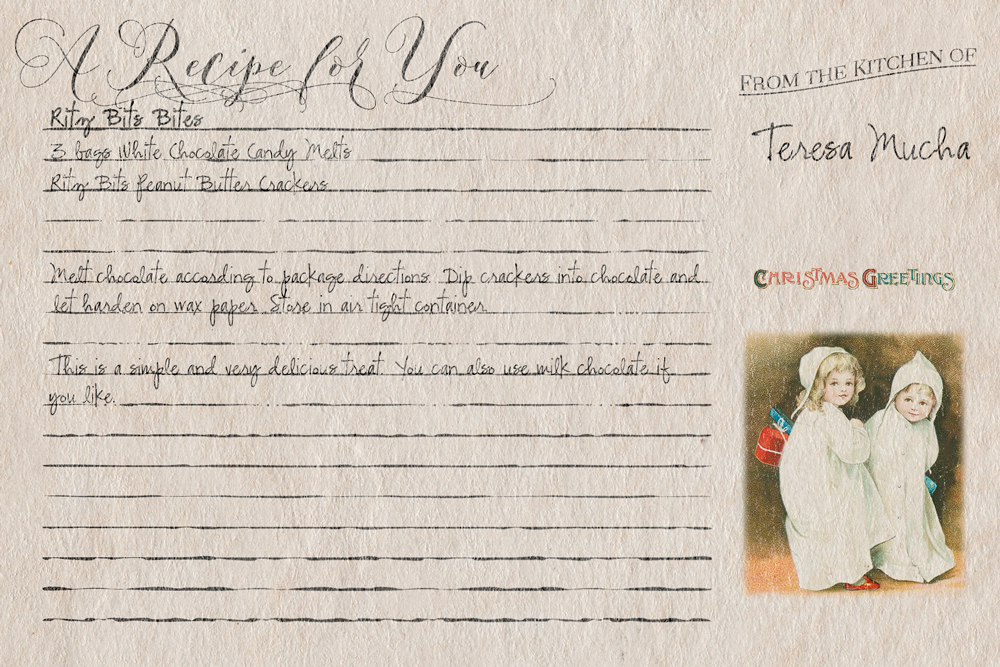 A Recipe for You
Ritz Bits Bites
3 bags White Chocolate Candy Melts
Ritz Bits Peanut Butter Crackers
Melt chocolate according to package directions. Dip crackers into chocolate and
let harden on wax paper. Store in air tight container.
This is a simple and very delicious treat. You can also use milk chocolate if
you like.
FROM THE KITCHEN OF
Teresa Mucha
CHRISTMAS GREETINGS